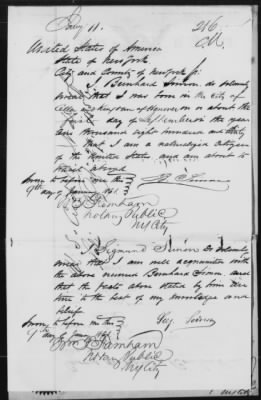 Jany 11.
216
United States of America
State of New York
City and County of New York ss:
I, Bernhard Simon, do solemnly
swear that I was born in the City of
of Hanover on or about the
first day of September the year
one thousand eight hundred and thirty
that I am a naturalized citizen
of the United States, and am about to
travel abroad
Sworn to before me this
9th day of January 1861.
B. Simon
Wm Farnham
Notary Public
NY City
I, Sigmund Simon do solemnly
swear that I am well acquainted with
the above named Bernhard Simon and
that the facts above stated by him are
true to the best of my knowledge and
belief.
Sworn to before me this
9th day of January 1861
Sig Simon
Wm Farnham
Notary Public
NY City